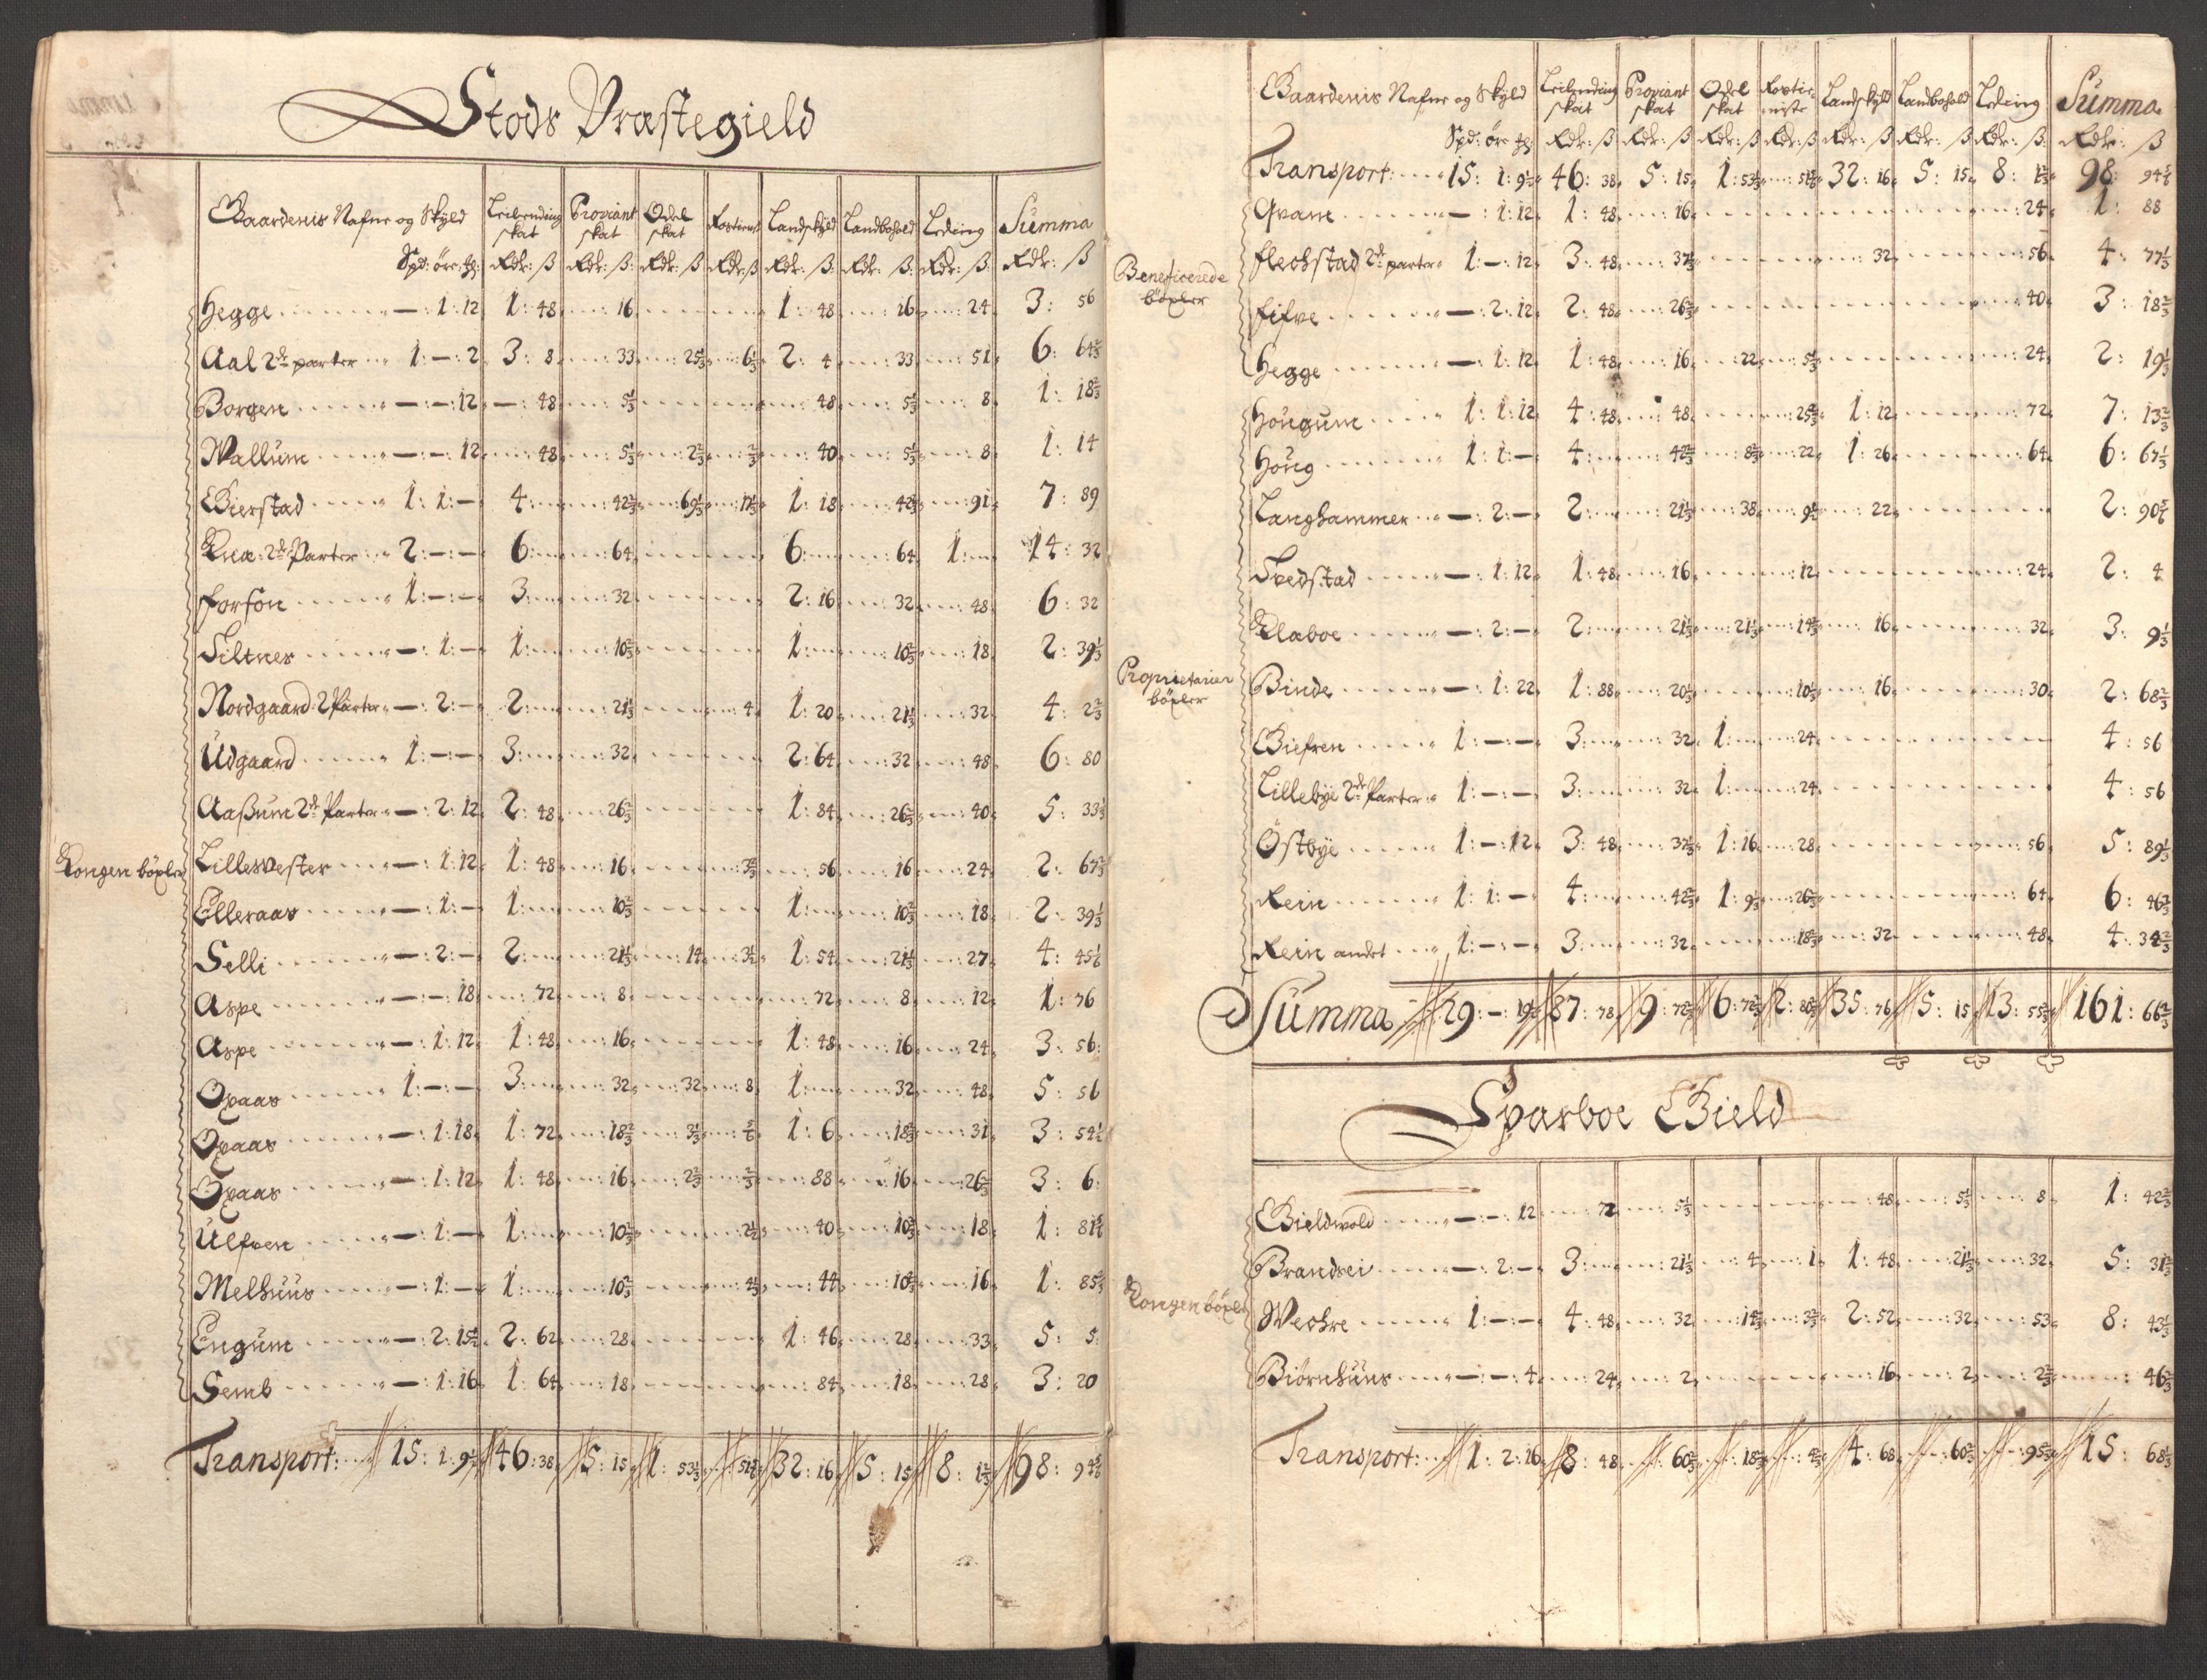 Stods Præstegield
Gaardenis Nafne og Skyld Leilending skat Proviant skat Odel skat Rostieniste Landskyld Landbohold Leding Summa
Spd: öre: Rdr: ß Rdr: ß Rdr: ß Rdr: ß Rdr: ß Rdr: ß Rdr: ß Rdr: ß
Kongen böxler
Hegge — : 1 : 12 1 : 48 16 1 : 48 16 24 3 : 56
Aal 2de parter 1 : — : 2 3 : 8 33 25⅓ 6⅓ 2 : 4 33 51 6 : 64⅔
Borgen — : — : 12 — : 48 5⅓ 48 5⅓ 8 1 : 18⅔
Wallum — : — : 12 48 5⅓ 2⅔ ⅔ 40 5⅓ 8 1 : 14
Gierstad 1 : 1 : — 4 : 42⅔ 69⅓ 17⅓ 1 : 18 42⅔ 91 7 : 89
2de Parter 2 : — : — 6 : 64 6 : 64 1 : 14 : 32
Forson 1 : — : — 3 : 32 2 : 16 32 48 6 : 32
Siltnes — : 1 : — 1 : 10⅔ 1 : 10⅔ 18 2 : 39⅓
Nordgaard 2 Parter — : 2 : — 2 : 21⅓ 4 1 : 20 21⅓ 32 4 : 2⅔
Udgaard 1 : — : — 3 : 32 2 : 64 32 48 6 : 80
Aaßum 2de Parter — : 2 : 12 2 : 48 26⅔ 1 : 84 26⅔ 40 5 : 33⅓
Lillewester — : 1 : 12 1 : 48 16 3⅔ 56 16 24 2 : 67⅔
Elleraas — : 1 : — 1 : 10⅔ 1 : 10⅔ 18 2 : 39⅓
Selli — : 2 : — 2 : 21⅓ 14 3½ 1 : 54 21⅓ 27 4 : 45⅙
Aspe — : — : 18 72 8 72 8 12 1 : 76
Aspe — : 1 : 12 1 : 48 16 1 : 48 16 24 3 : 56
Opaas 1 : — : — 3 : 32 32 8 1 : 32 48 5 : 56
Opaas — : 1 : 18 1 : 72 18⅔ 3⅓ ⅚ 1 : 6 18⅔ 31 3 : 54½
Opaas — : 1 : 12 1 : 48 16 2⅔ ⅔ 88 16 26⅔ 3 : 6
Ulfven — : 1 : — 1 : 10⅔ 2½ 40 10⅔ 18 1 : 81⅚
Melhuus — : 1 : — 1 : 10⅔ 4⅔ 44 10⅔ 16 1 : 85⅔
Engum — : 2 : 15½ 2 : 62 28 1 : 46 28 33 5 : 5
Semb — : 1 : 16 1 : 64 18 84 18 28 3 : 20
Transport: 15 : 1 : 9½ 46 : 38 5 : 15 1 : 53⅓ 51⅚ 32 : 16 5 : 15 8 : 1⅔ 98 : 94⅚
Gaardenis Nafne og Skyld Leilending skat Proviant skat Odel skat Rostieniste Landskyld Landbohold Leding Summa
Spd: öre Rdr: ß Rdr: ß Rdr: ß Rdr: ß Rdr: ß Rdr: ß Rdr: ß Rdr: ß
Transport: 15 : 1 : 9½ 46 : 38 5 : 15 1 : 53⅓ 51⅚ 32 : 16 5 : 15 8 : 1⅔ 98 : 94⅚
Beneficerede böxler
Qvam — : 1 : 12 1 : 48 16 24 1 : 88
Flechstad 2de parter 1 : — : 12 3 : 48 37⅓ 32 56 4 : 77⅓
Fifve — : 2 : 12 2 : 48 26⅔ 40 3 : 18⅔
Hegge — : 1 : 12 1 : 48 16 22 5⅓ 24 2 : 19⅓
Proprietarier böxler
Hougum 1 : 1 : 12 4 : 48 48 25⅔ 1 : 12 72 7 : 13⅔
Houg 1 : 1 : — 4 : 42⅔ 8⅔ 22 1 : 26 64 6 : 67⅓
Langhammer — : 2 : — 2 : 21⅓ 38 9½ 22 2 : 90⅚
Svedstad — : 1 : 12 1 : 48 16 12 24 2 : 4
Klaboe — : 2 : — 2 : 21⅓ 21⅓ 14⅔ 16 32 3 : 9⅓
Binde — : 1 : 22 1 : 88 20⅓ 10⅓ 16 30 2 : 68⅔
Giefren 1 : — : — 3 : 32 1 : 24 4 : 56
Lillebye 2de Parter 1 : — : — 3 : 32 1 : 24 4 : 56
Östbye 1 : — : 12 3 : 48 37⅓ 1 : 16 28 56 5 : 89⅓
Rein 1 : 1 : — 4 : 42⅔ 1 : 9⅓ 26⅔ 64 6 : 46⅔
Rein andet 1 : — : — 3 : 32 18⅔ 32 48 4 : 34⅔
Summa 29 : — : 19½ 87 : 78 9 : 72⅔ 6 : 72⅔ 2 : 80⅔ 35 : 76 5 : 15 13 : 55⅔ 161 : 66⅔
Sparboe Gield
Kongen böxler
Gieldwold — : — : 12 72 5⅓ 48 5⅓ 8 1 : 42⅔
Brandsei — : 2 : — 3 : 21⅓ 4 1 1 : 48 21⅓ 32 5 : 31⅔
Wechre 1 : — : — 4 : 48 32 14⅔ 3⅔ 2 : 52 32 53 8 : 43⅓
Biörnhuus — : — : 4 24 2 16 2 2⅔ 46⅔
Transport: 1 : 2 : 16 8 : 48 60⅔ 18⅔ 4⅔ 4 : 68 60⅔ 95⅔ 15 : 68⅓